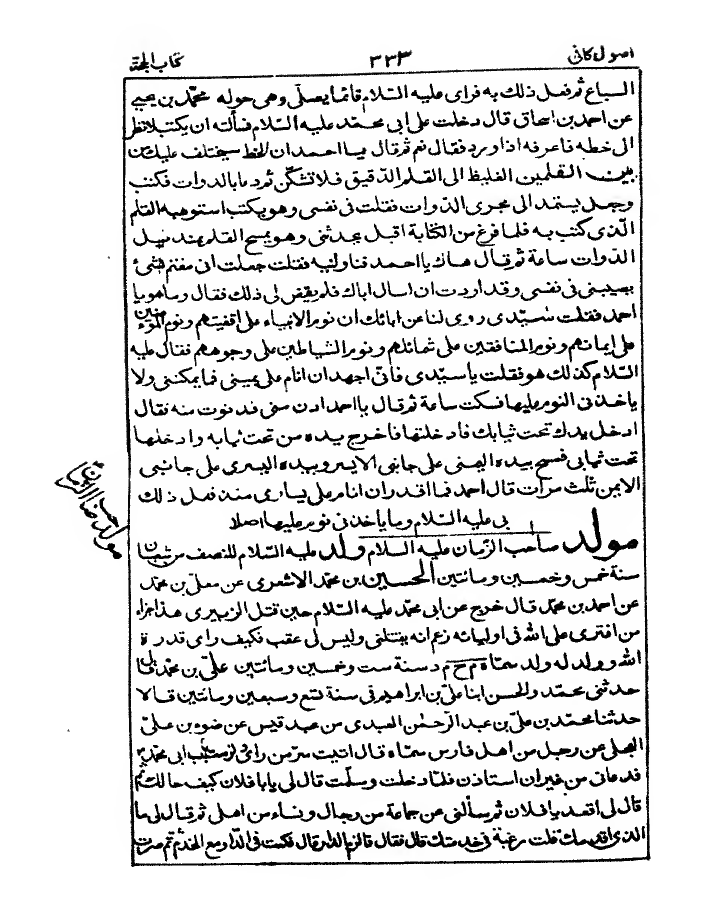 اصول کافی ٣٣٣ کتاب الحجة
السباع ثم فعل ذلك به فرای علیه السّلام قائما یصلّی وهی حوله محمّد بن یحیی
عن احمد بن اسحاق قال دخلت علی ابی محمّد علیه السّلام فسألته ان یکتب لانظر
الی خطه فاعرفه اذا ورد فقال نعم ثم قال یا احمد ان الخط سیختلف علیك من
بین القلمین الغلیظ الی القلم الدّقیق فلا تشکّن ثم دعا بالدوات فکتب
وجعل یستمد الی مجری الدّوات فقلت فی نفسی وهو یکتب استوهبه القلم
الّذی کتب به فلما فرغ من الکتابة اقبل یحدثنی وهو یمسح القلم بمندیل
الدّوات ساعة ثم قال هاك یا احمد فناولنیه فقلت جعلت ان مغتم لشئ
یصیبنی فی نفسی وقد اردت ان اسال اباك فلم یقض لی ذلك فقال وما هو یا
احمد فقلت سیّدی روی لنا عن ابائك ان نوم الانبیاء علی اقفیتهم ونوم المؤمنین
علی ایمانهم ونوم المنافقین علی شمائلهم ونوم الشیاطین علی وجوههم فقال علیه
السّلام کذلك هو فقلت یا سیّدی فانّی اجهد ان انام علی یمینی فما یمکننی ولا
یاخذنی النوم علیها فسکت ساعة ثم قال یا احمد ادن منی فدنوت منه فقال
ادخل یدك تحت ثیابك فادخلتها فاخرج یده من تحت ثیابه وادخلها
تحت ثیابی فمسح بیده الیمنی علی جانبی الایسر وبیده الیسری علی جانبی
الایمن ثلث مرات قال احمد فما اقدر ان انام علی یساری منذ فعل ذلك
بی علیه السّلام وما یاخذنی نوم علیها اصلا
مولد صاحب الزّمان علیه السلام ولد علیه السّلام للنصف من شعبان
سنة خمس وخمسین ومائتین الحسین بن محمّد الاشعری عن معلّی بن محمّد
عن احمد بن محمّد قال خرج عن ابی محمّد علیه السّلام حین قتل الزبیری هذا جزاء
من افتری علی الله فی اولیائه زعم انه یقتلنی ولیس لی عقب فکیف رای قدرة
الله وولد له ولد سمّاه م ح م د سنة ست وخمسین ومائتین علیّ بن محمّد قال
حدثنی محمّد والحسن ابنا علیّ بن ابراهیم فی سنة تسع وسبعین ومائتین قالا
حدثنا محمّد بن علیّ بن عبد الرّحمٰن العبدی من عبد قیس عن ضوء بن علیّ
العجلی عن رجل من اهل فارس سمّاه قال اتیت سرّ من رای ولزمت باب ابی محمّد
فدعانی من غیر ان استاذن فلمّا دخلت وسلّمت قال لی یا با فلان کیف حالك ثم
قال لی اقعد یا فلان ثم سألنی عن جماعة من رجال ونساء من اهلی ثم قال لی ما
الذی اقدمك قلت رغبة فی خدمتك قال فقال فالزم الدار قال فکنت فی الدّار مع الخدم ثم صرت
مولد صاحب الزمان